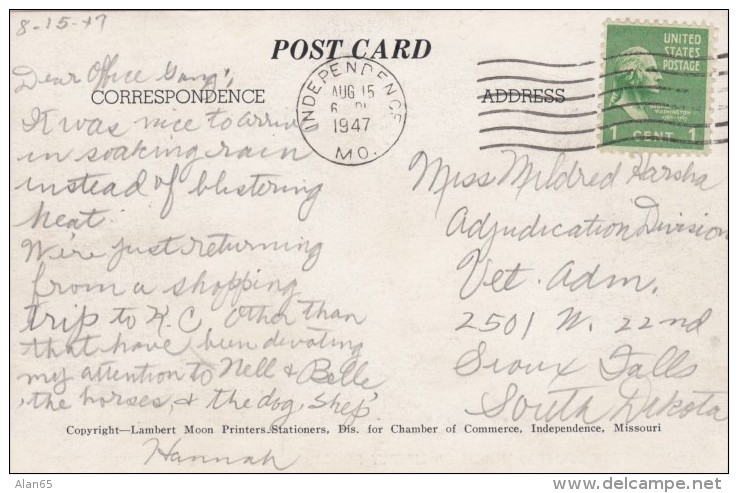 8-15-47
POST CARD
Dear Office Gang,
CORRESPONDENCE
It was nice to arrive
in soaking rain
instead of blistering
heat.
We're just returning
from a shopping
trip to K.C. Other than
that have been devoting
my attention to Nell & Belle
the horses, & the dog, Shep.
Hannah
INDEPENDENCE
AUG 15
6
1947
MO.
ADDRESS
UNITED
STATES
POSTAGE
WASHINGTON
1 CENT 1
Miss Mildred Harsha
Adjudication Division
Vet. Adm.
2501 W. 22nd
Sioux Falls
South Dakota
Copyright—Lambert Moon Printers-Stationers, Dis. for Chamber of Commerce, Independence, Missouri
Alan65
delcampe.net